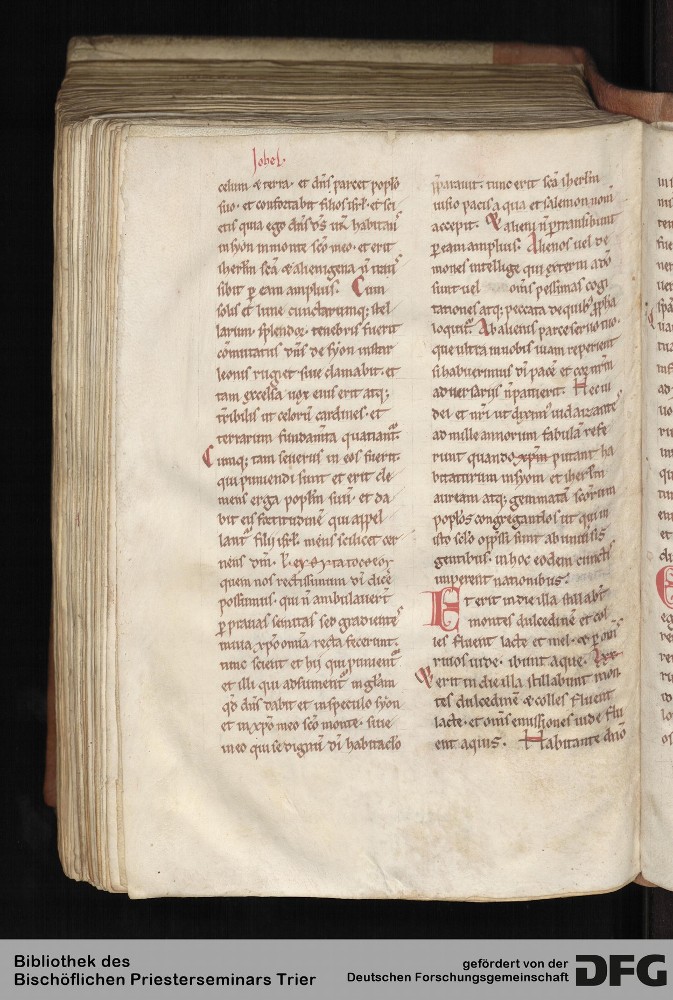 Johel
celum & terra. et dn̄s parcet popl̄o
suo. et confortabit filios isrl̄. et sci
etis quia ego dn̄s d̄s ur̄. habitans
in syon in monte sc̄o meo. et erit
iherl̄m sc̄a & alienigena n̄ tran
sibit ꝑ eam amplius. Cum
solis et lune cunctarumq; stel
larum splendor tenebris fuerit
com̄utatus dn̄s de syon instar
leonis rugiet siue clamabit. et
tam excelsa uox eius erit atq;
tribilis ut celorū cardines. et
terrarum fundam̄ta quatiant̄.
Cumq; tam seuerus in eos fuerit
qui puniendi sunt et erit cle
mens erga popl̄m suū. et da
bit eis fortitudinē qui appel
lant̄ filij isrl̄. mens scilicet cer
nens dm̄.
quem nos rectissimum di dicē
possumus. qui n̄ ambulauert̄
ꝑ prauas semitas sed gradientes
in uia xp̄o om̄ia recta fecerunt.
tunc scient et hij qui punient̄
et illi qui adsument̄ in gl̄am
qd̄ dn̄s habit& in speculo syon
et in xp̄o meo sc̄o monte. siue
in eo qui se dignū dī habitacl̄o
p̄parauit. tunc erit sc̄a iherl̄m
uisio pacis a qua et salemon nom̄
accepit. & alieni n̄ ꝑtransibunt
ꝑ eam amplius. Alienos uel de
mones intellige qui externi a dō
sunt uel om̄s pessimas cogi
tationes atq; peccata de quib; ꝓph̄a
loquit̄. Ab alienis parce seruo tuo.
que ultra in uobis uiam reperient
si habuerimus dī pacē et cor nr̄m
aduersariis n̄ patuerit. Hec iu
dei et nr̄i ut diximus iudaizantes
ad mille annorum fabulā refe
runt quando xp̄m putant ha
bitaturum in syon et iherl̄m
auream atq; gemmatā sc̄orum
popl̄os congregandos ut qui in
isto sc̄lo opp̄ssi sunt ab uniuersis
gentibus. in hoc eodem cunctis
imperent nationibus.
Et erit in die illa stillabt̄
montes dulcedinē et col
les fluent lacte et mel. & ꝑ om̄s
riuos iude. ibunt aque. lxx
& erit in die illa stillabunt mon
tes dulcedinē & colles fluent
lacte. et om̄s emissiones iude flu
ent aquis. Habitante dn̄o
Bibliothek des
Bischöflichen Priesterseminars Trier
gefördert von der
Deutschen Forschungsgemeinschaft
DFG